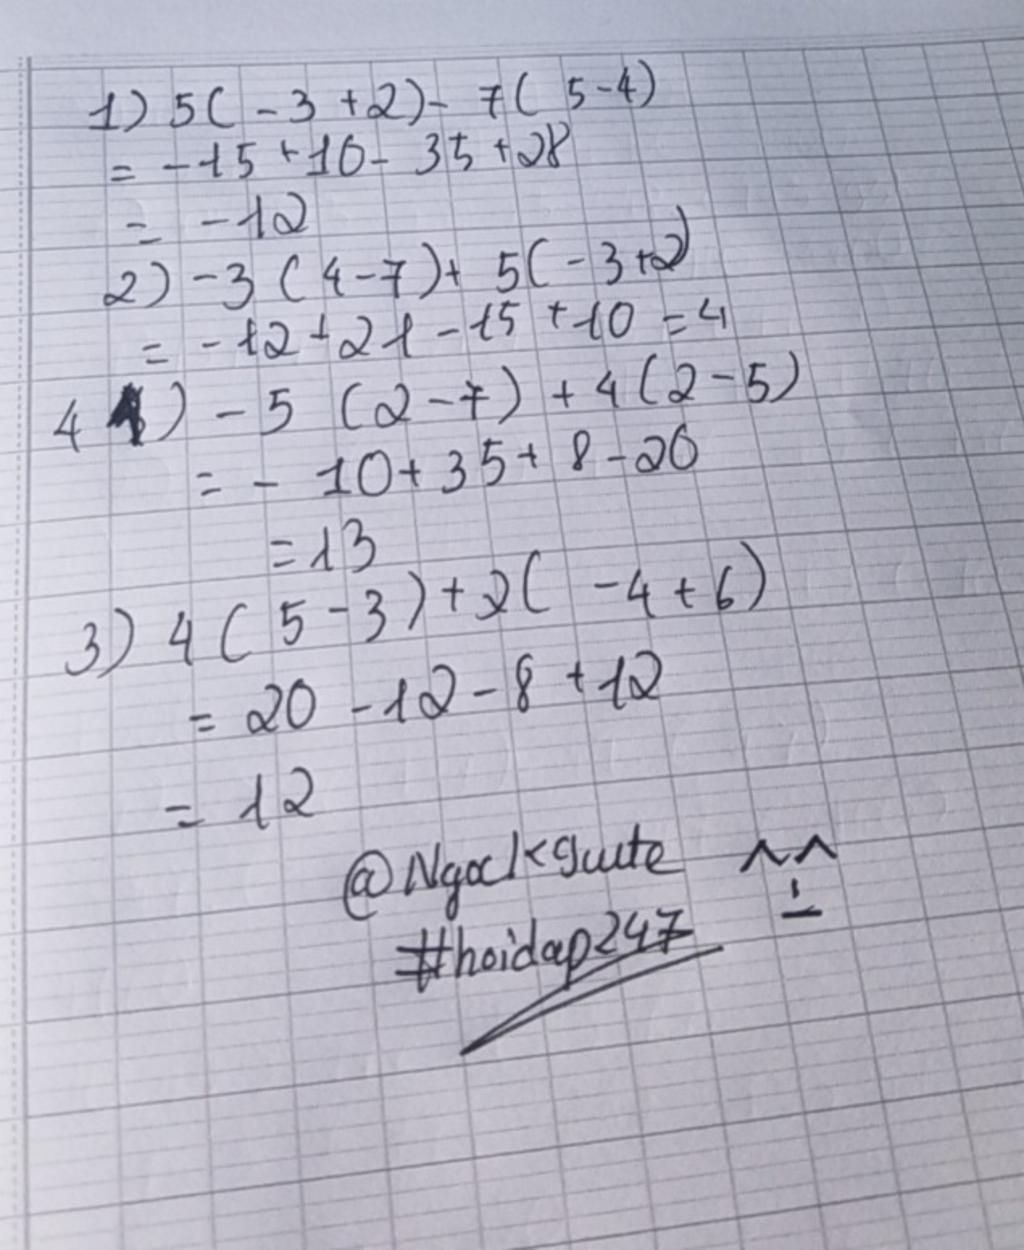 1) 5( -3 +2)- 7( 5-4)
= -15 +10- 35 +28
= -12
2) -3 ( 4-7)+ 5( -3+2)
= -12+21 -15 +10 =4
4 ) -5 (2-7) +4(2-5)
= - 10+35+ 8-20
=13
3) 4( 5-3)+2( -4+6)
= 20 -12-8 +12
= 12
#hoidap247